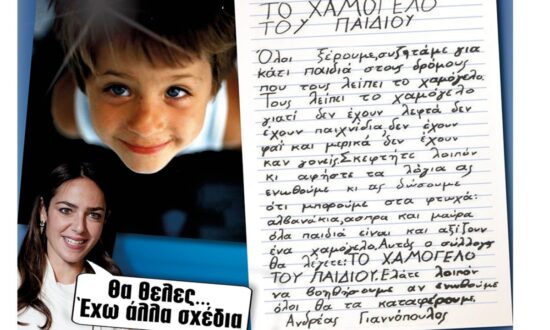 ΤΟ ΧΑΜΟΓΕΛΟ
ΤΟΥ ΠΑΙΔΙΟΥ
Όλοι ξέρουμε, συζητάμε για
κάτι παιδιά στους δρόμους
που τους λείπει το χαμόγελο.
Τους λείπει το χαμόγελο
γιατί δεν έχουν λεφτά δεν
έχουν παιχνίδια, δεν έχουν
φαΐ και μερικά δεν έχουν
καν γονείς. Σκεφτήτε λοιπόν
κι αφήστε τα λόγια ας
ενωθούμε κι ας δώσουμε
ότι μπορούμε στα φτωχά:
αλβανάκια, ασπρα και μαύρα
όλα παιδιά είναι και αξίζουν
ένα χαμόγελο. Αυτός ο σύλλογος
θα λέγετε: ΤΟ ΧΑΜΟΓΕΛΟ
ΤΟΥ ΠΑΙΔΙΟΥ. Ελάτε λοιπόν
να βοηθήσουμε αν ενωθούμε
όλοι θα τα καταφέρουμε.
Ανδρέας Γιαννόπουλος
Θα θελες...
Έχω άλλα σχέδια